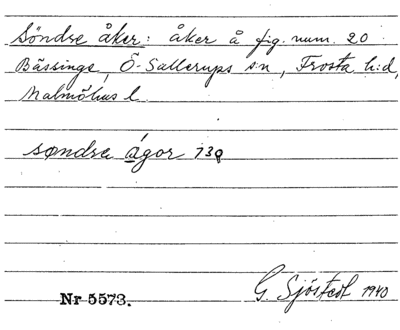 Söndre åker: åker å fig. num. 20
Bässinge, Ö-Sallerups s:n, Frosta h:d,
Malmöhus l.
søndre ágor 73
Nr 5573.
G. Sjöstedt 1940